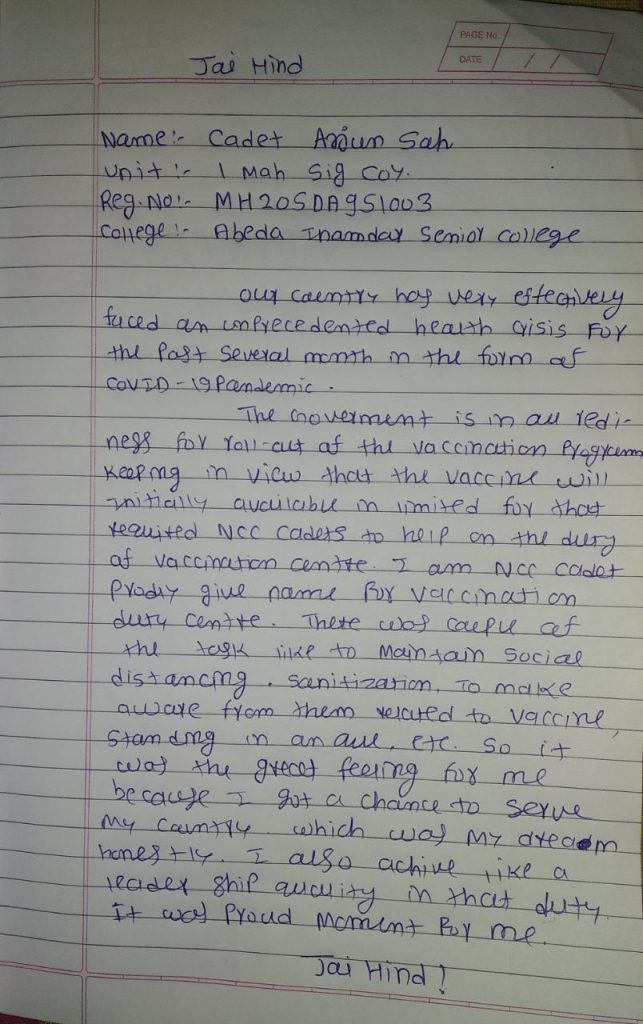 PAGE No.
DATE / /
Jai Hind
Name:- Cadet Arjun Sah
Unit :- 1 Mah Sig Coy.
Reg. No:- MH20SDA951003
College:- Abeda Inamdar Senior College
Our Country has very effectively
faced an unprecedented health crisis For
the Past Several month in the form of
COVID-19 Pandemic.
The Goverment is in all redi-
ness for roll-out of the vaccination Program
Keeping in view that the vaccine will
initially available in limited for that
required NCC Cadets to help on the duty
of vaccination centre. I am NCC Cadet
Prodly give name for vaccination
duty centre. There was couple of
the task like to Maintain Social
distancing, Sanitization, To make
aware from them related to vaccine,
Standing in an que, etc. So it
was the great feeling for me
because I got a chance to serve
My Country which was My dream
honestly. I also achive like a
leader ship quality in that duty.
It was Proud Moment For me.
Jai Hind!